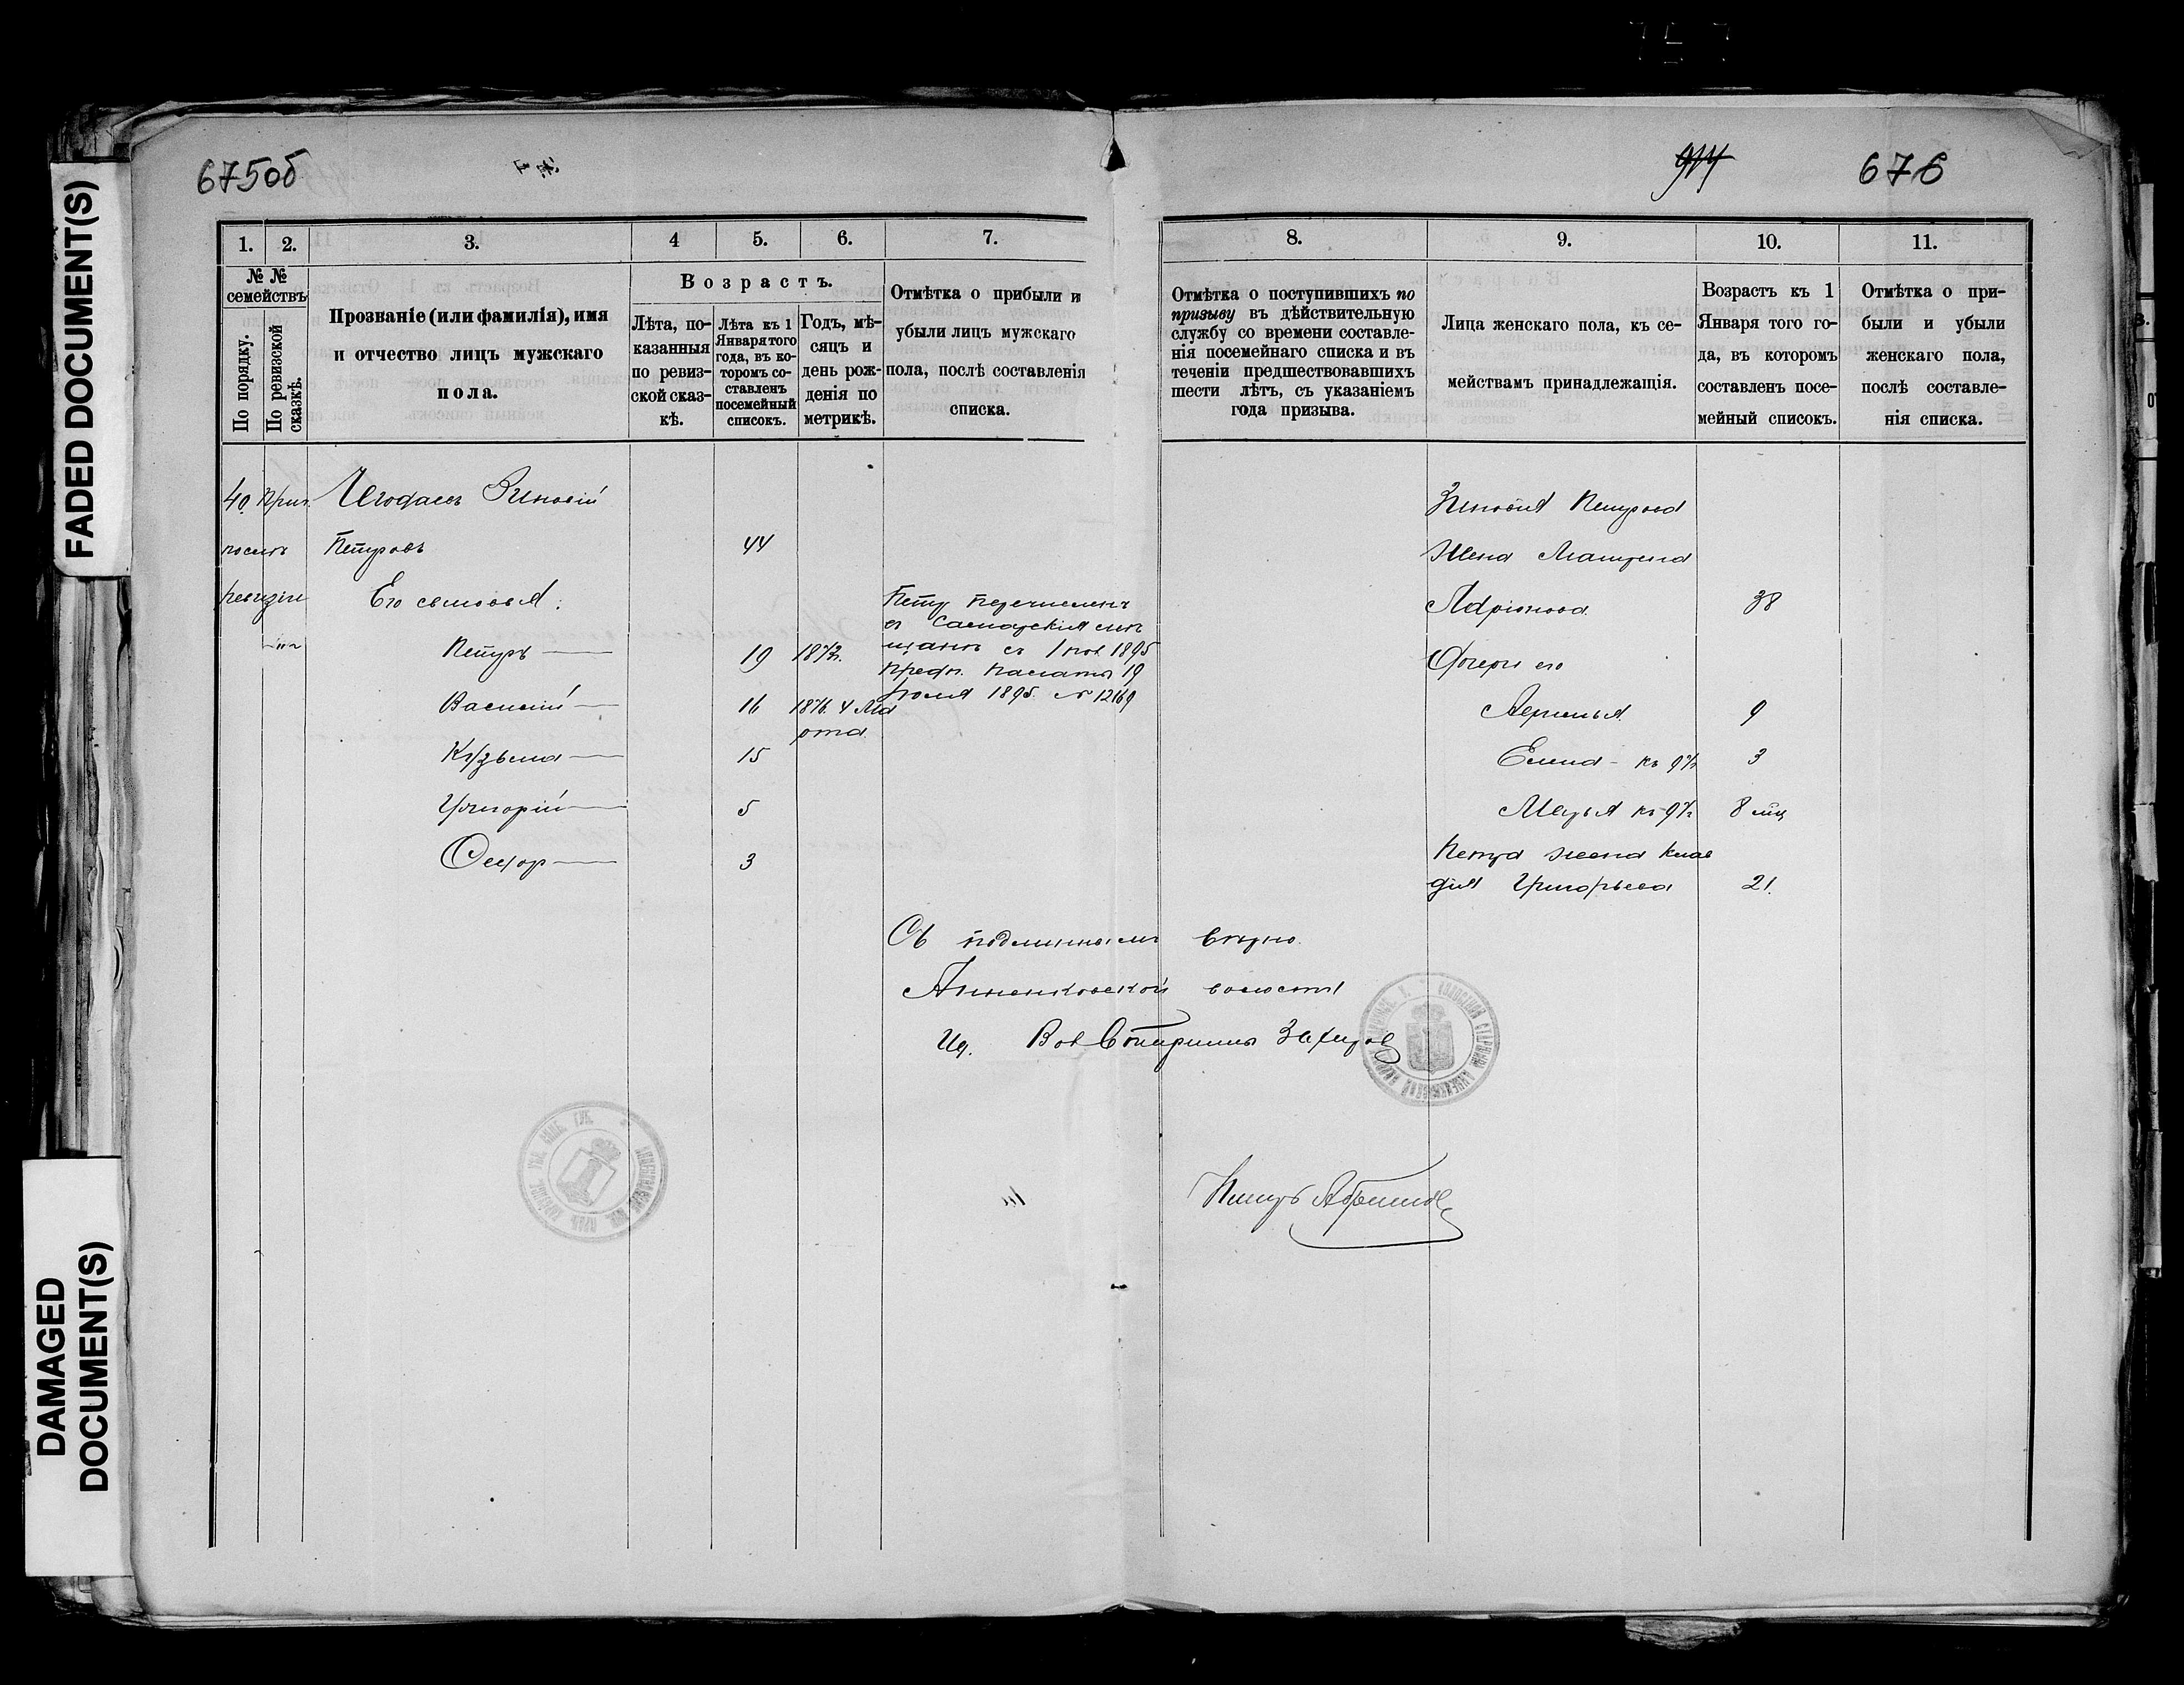 FADED DOCUMENT(S)
DAMAGED
DOCUMENT(S)
675об
914
676
1. 2. 3. 4 5. 6. 7.
№ №
семействъ
По порядку.
По ревизской
сказкѣ.
Прозваніе (или фамилія), имя
и отчество лицъ мужскаго
пола.
Возрастъ.
Лѣта, по-
казанныя
по ревиз-
ской сказ-
кѣ.
Лѣта къ 1
Января того
года, въ ко-
торомъ со-
ставленъ
посемейный
списокъ.
Годъ, мѣ-
сяцъ и
день рож-
денія по
метрикѣ.
Отмѣтка о прибыли и
убыли лицъ мужскаго
пола, послѣ составленія
списка.
40. Зиновій
Петровъ 44
ревизіи Его сыновья:
Петръ 19
Василій 16 1876. 4 Ма
рта
Кузьма 15
Григорій 5
Ѳедор 3
Петр перечисленъ
въ Самарскія мѣ
щане съ 1 пол. 1895
предп. палаты 19
Іюля 1895. № 12169
8. 9. 10. 11.
Отмѣтка о поступившихъ по
призыву въ дѣйствительную
службу со времени составле-
нія посемейнаго списка и въ
теченіи предшествовавшихъ
шести лѣтъ, съ указаніемъ
года призыва.
Лица женскаго пола, къ се-
мействамъ принадлежащія.
Возрастъ къ 1
Января того го-
да, въ которомъ
составленъ посе-
мейный списокъ.
Отмѣтка о при-
были и убыли
женскаго пола,
послѣ составле-
нія списка.
Зиновія Петрова
жена Матрена
Адріонова 38
Дочери его
9
3
8 мц
Петра жена Клав
дія Григорьева 21.
Съ подлиннымъ вѣрно.
Анненковской волости
Старшина Захаров